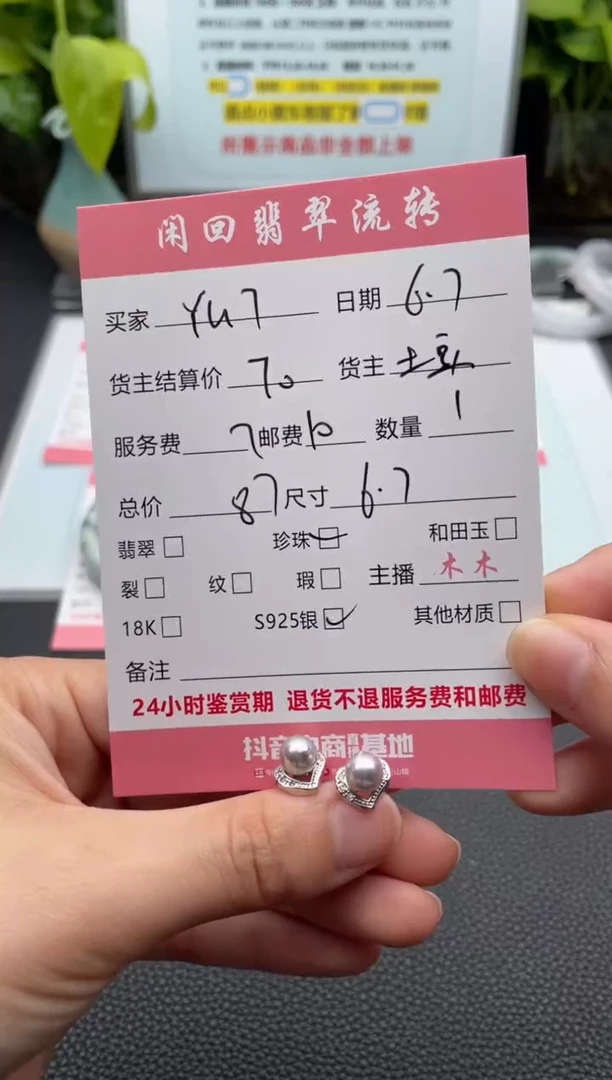 所展示商品非全部上架
闲回翡翠流转
买家 YU7 日期 6.7
货主结算价 70 货主 土豆
服务费 7 邮费 10 数量 1
总价 87 尺寸 6.7
翡翠 珍珠 和田玉
裂 纹 瑕 主播 木木
18K S925银 其他材质
备注
24小时鉴赏期 退货不退服务费和邮费
抖音电商 基地